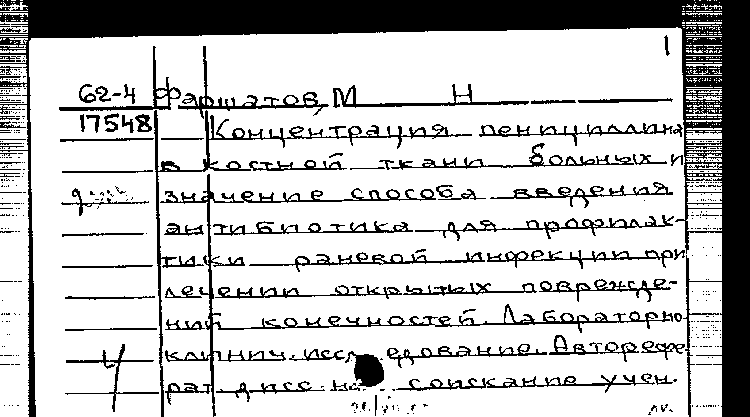 1
62-4 Фаршатов, М Н
17548 Концентрация пенициллина
в костной ткани больных и
значение способа введения
антибиотика для профилак-
тики раневой инфекции при
лечении открытых поврежде-
ний конечностей. Лабораторно
клинич. исследование. Авторефе
рат дисс. на соискание учен.